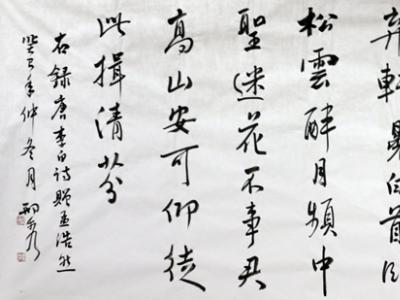 弃轩冕白首卧
松雲醉月頻中
聖迷花不事君
高山安可仰徒
此揖清芬
右録唐李白詩贈孟浩然
癸巳年仲冬月